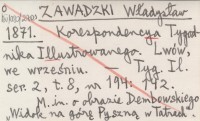 ZAWADZKI Władysław
1871. Korespondencya Tygod-
nika Illustrowanego. Lwów,
we wrześniu. — Tyg. Il.
ser. 2, t. 8, nr 194: 42.
M. in. o obrazie Dembowskiego
„Widok na górę Pyszną w Tatrach".